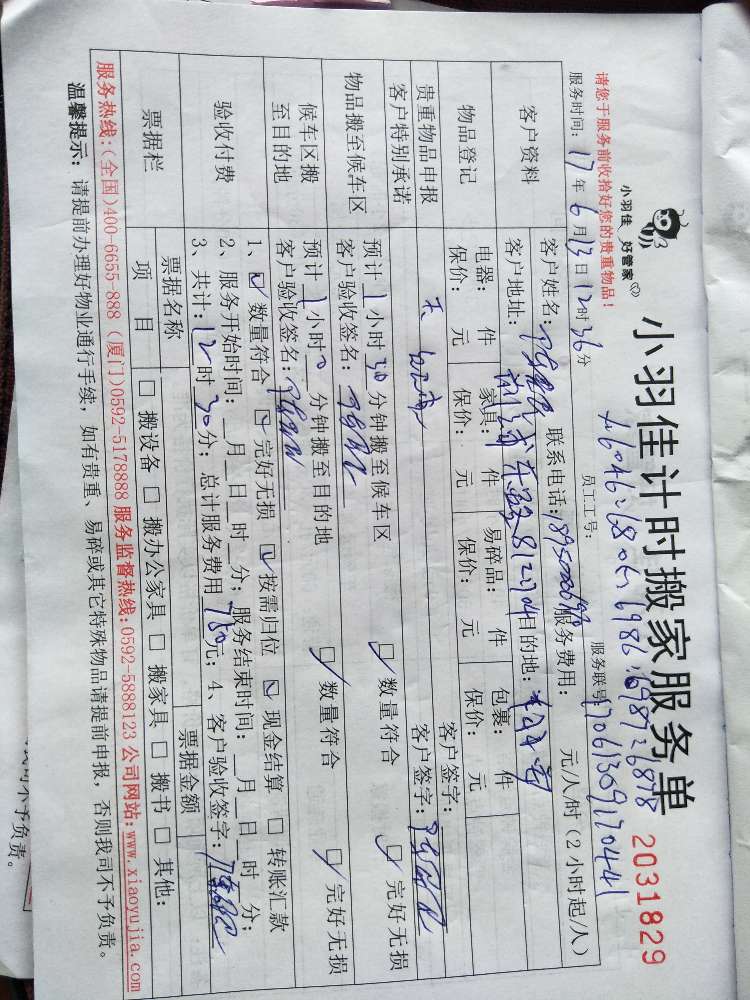 小羽佳 好管家
小羽佳计时搬家服务单
2031829
请您于服务前收拾好您的贵重物品！
员工工号：
服务联号：
服务时间：17年6月13日12时36分
客户资料
客户姓名： 联系电话： 服务费用： 元/人/时（2小时起/人）
客户地址： 目的地：
物品登记
电器： 件 家具： 件 易碎品： 件 包裹： 件
保价： 元 保价： 元 保价： 元 保价： 元
贵重物品申报 无 客户签字：
客户特别承诺 客户签字：
物品搬至候车区
预计1小时30分钟搬至候车区 数量符合 完好无损
客户验收签名：
候车区搬至目的地
预计1小时0分钟搬至目的地 数量符合 完好无损
客户验收签名：
验收付费
1、数量符合 完好无损 按需归位 现金结算 转账汇款
2、服务开始时间：__月__日__时__分；服务结束时间：__月__日__时__分；
3、共计：12时30分；总计服务费用780元；4、客户验收签字：
票据栏
票据名称 票据金额
项目 □搬设备 □搬办公家具 □搬家具 □搬书 □其他：
服务热线：(全国)400-6655-888 (厦门)0592-5178888 服务监督热线：0592-5888123 公司网站：www.xiaoyujia.com
温馨提示：请提前办理好物业通行手续，如有贵重、易碎或其它特殊物品请提前申报，否则我司不予负责。
我司不予负责。